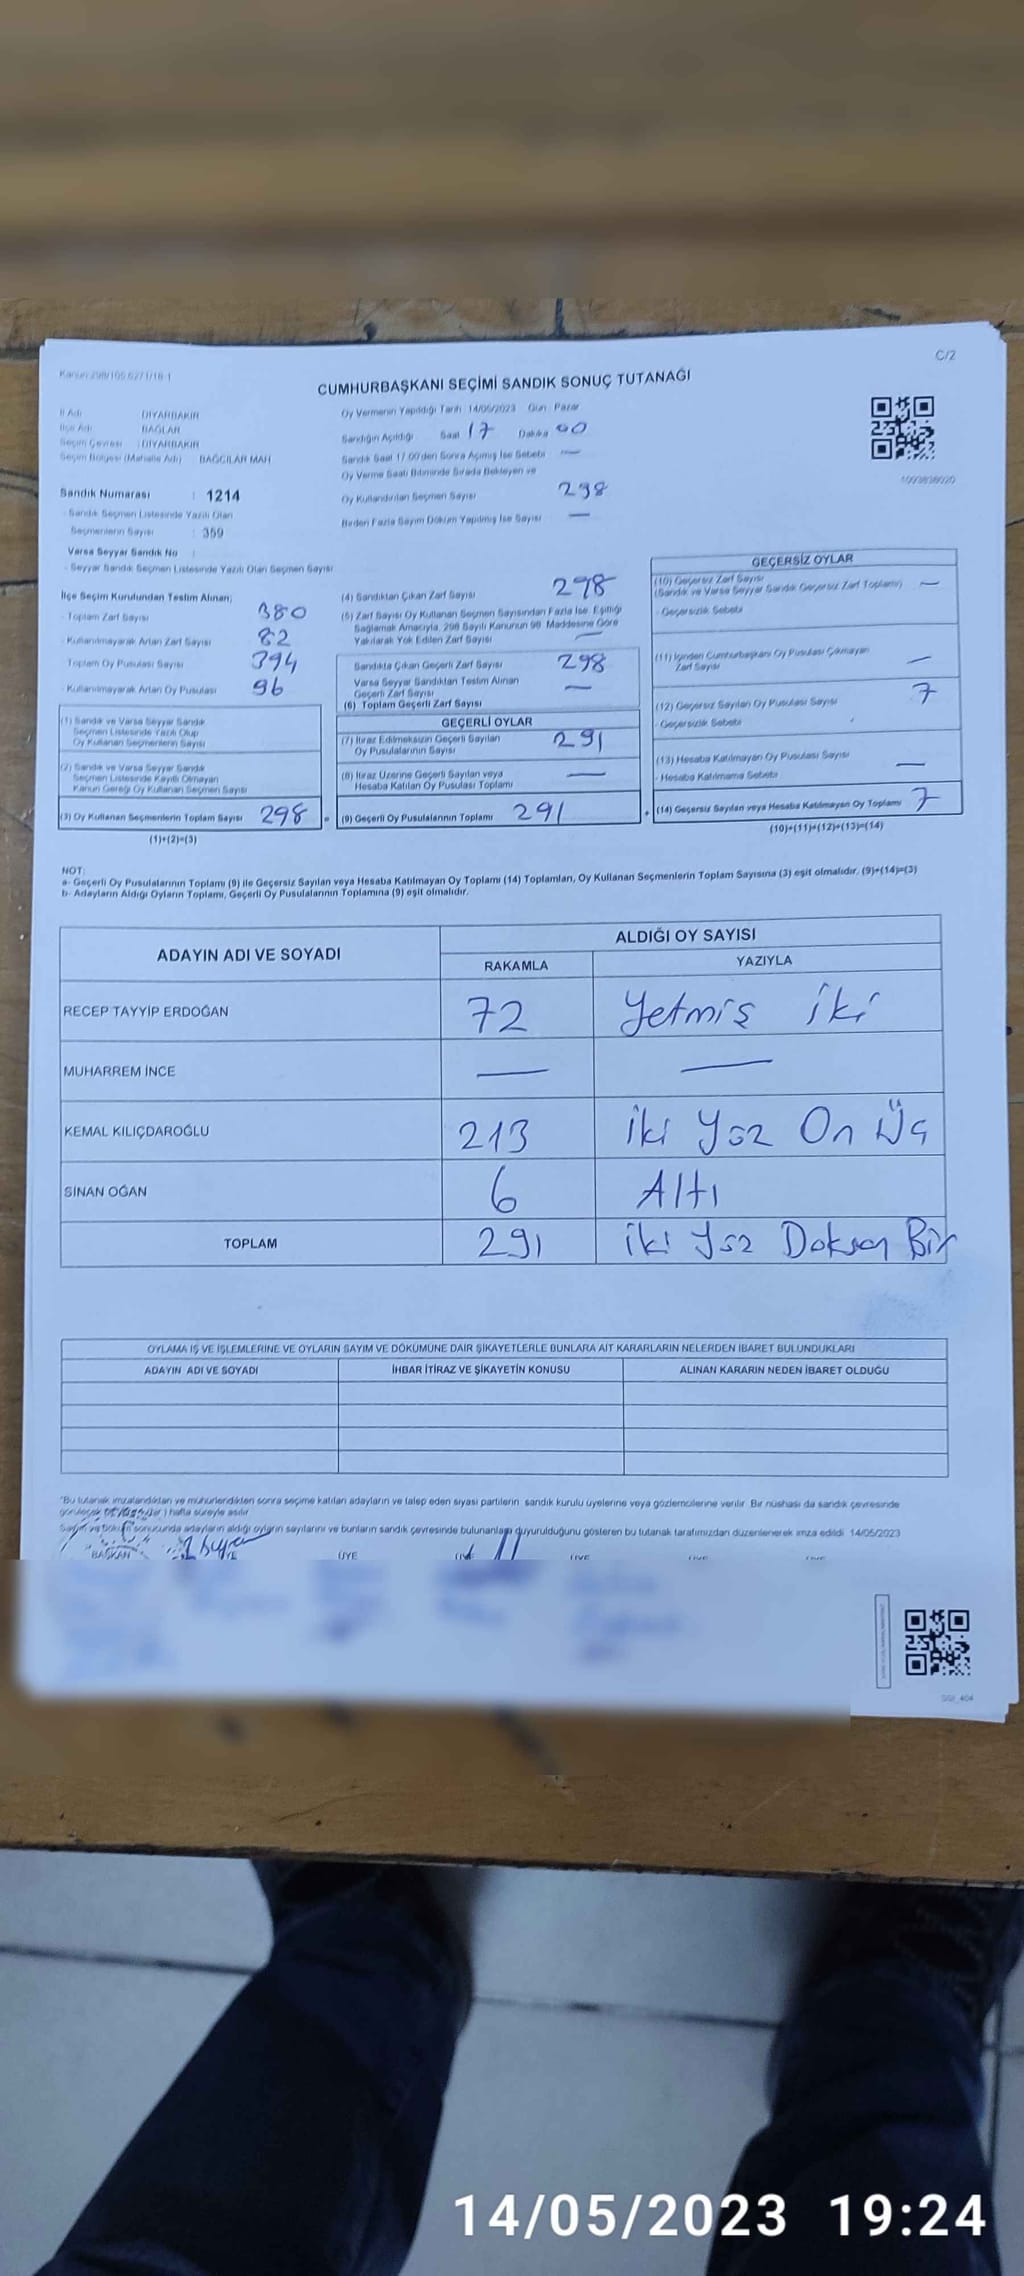 C/2
Kanun:298/105,6271/18-1
CUMHURBAŞKANI SEÇİMİ SANDIK SONUÇ TUTANAĞI
İl Adı DİYARBAKIR
İlçe Adı BAĞLAR
Seçim Çevresi : DİYARBAKIR
Seçim Bölgesi (Mahalle Adı) BAĞCILAR MAH
Sandık Numarası : 1214
- Sandık Seçmen Listesinde Yazılı Olan
Seçmenlerin Sayısı : 359
Varsa Seyyar Sandık No :
- Seyyar Sandık Seçmen Listesinde Yazılı Olan Seçmen Sayısı
Oy Vermenin Yapıldığı Tarih 14/05/2023 Gün Pazar
Sandığın Açıldığı Saat 17 Dakika 00
Sandık Saat 17.00'den Sonra Açılmış İse Sebebi —
Oy Verme Saati Bitiminde Sırada Bekleyen ve
Oy Kullandırılan Seçmen Sayısı 298
Birden Fazla Sayım Döküm Yapılmış İse Sayısı —
1093838020
İlçe Seçim Kurulundan Teslim Alınan;
- Toplam Zarf Sayısı 380
- Kullanılmayarak Artan Zarf Sayısı 82
Toplam Oy Pusulası Sayısı 394
- Kullanılmayarak Artan Oy Pusulası 96
(1) Sandık ve Varsa Seyyar Sandık
Seçmen Listesinde Yazılı Olup
Oy Kullanan Seçmenlerin Sayısı
(2) Sandık ve Varsa Seyyar Sandık
Seçmen Listesinde Kayıtlı Olmayan
Kanun Gereği Oy Kullanan Seçmen Sayısı
(3) Oy Kullanan Seçmenlerin Toplam Sayısı 298 =
(1)+(2)=(3)
(4) Sandıktan Çıkan Zarf Sayısı 298
(5) Zarf Sayısı Oy Kullanan Seçmen Sayısından Fazla İse, Eşitliği
Sağlamak Amacıyla, 298 Sayılı Kanunun 98. Maddesine Göre
Yakılarak Yok Edilen Zarf Sayısı —
Sandıkta Çıkan Geçerli Zarf Sayısı 298
Varsa Seyyar Sandıktan Teslim Alınan
Geçerli Zarf Sayısı —
(6) Toplam Geçerli Zarf Sayısı
GEÇERLİ OYLAR
(7) İtiraz Edilmeksizin Geçerli Sayılan
Oy Pusulalarının Sayısı 291
(8) İtiraz Üzerine Geçerli Sayılan veya
Hesaba Katılan Oy Pusulası Toplamı —
(9) Geçerli Oy Pusulalarının Toplamı 291 +
GEÇERSİZ OYLAR
(10) Geçersiz Zarf Sayısı
(Sandık ve Varsa Seyyar Sandık Geçersiz Zarf Toplamı) —
- Geçersizlik Sebebi
(11) İçinden Cumhurbaşkanı Oy Pusulası Çıkmayan
Zarf Sayısı —
(12) Geçersiz Sayılan Oy Pusulası Sayısı 7
- Geçersizlik Sebebi
(13) Hesaba Katılmayan Oy Pusulası Sayısı —
- Hesaba Katılmama Sebebi
(14) Geçersiz Sayılan veya Hesaba Katılmayan Oy Toplamı 7
(10)+(11)+(12)+(13)=(14)
NOT:
a- Geçerli Oy Pusulalarının Toplamı (9) ile Geçersiz Sayılan veya Hesaba Katılmayan Oy Toplamı (14) Toplamları, Oy Kullanan Seçmenlerin Toplam Sayısına (3) eşit olmalıdır. (9)+(14)=(3)
b- Adayların Aldığı Oyların Toplamı, Geçerli Oy Pusulalarının Toplamına (9) eşit olmalıdır.
ADAYIN ADI VE SOYADI ALDIĞI OY SAYISI
RAKAMLA YAZIYLA
RECEP TAYYİP ERDOĞAN 72 Yetmiş İki
MUHARREM İNCE — —
KEMAL KILIÇDAROĞLU 213 İki Yüz On Üç
SİNAN OĞAN 6 Altı
TOPLAM 291 İki Yüz Doksan Bir
OYLAMA İŞ VE İŞLEMLERİNE VE OYLARIN SAYIM VE DÖKÜMÜNE DAİR ŞİKAYETLERLE BUNLARA AİT KARARLARIN NELERDEN İBARET BULUNDUKLARI
ADAYIN ADI VE SOYADI İHBAR İTİRAZ VE ŞİKAYETİN KONUSU ALINAN KARARIN NEDEN İBARET OLDUĞU
"Bu tutanak imzalandıktan ve mühürlendikten sonra seçime katılan adayların ve talep eden siyasi partilerin sandık kurulu üyelerine veya gözlemcilerine verilir. Bir nüshası da sandık çevresinde
görülecek bir yere (bir) hafta süreyle asılır
Sayım ve döküm sonucunda adayların aldığı oyların sayılarını ve bunların sandık çevresinde bulunanlara duyurulduğunu gösteren bu tutanak tarafımızdan düzenlenerek imza edildi 14/05/2023
BAŞKAN ÜYE ÜYE ÜYE ÜYE ÜYE ÜYE
SGI_404
14/05/2023 19:24